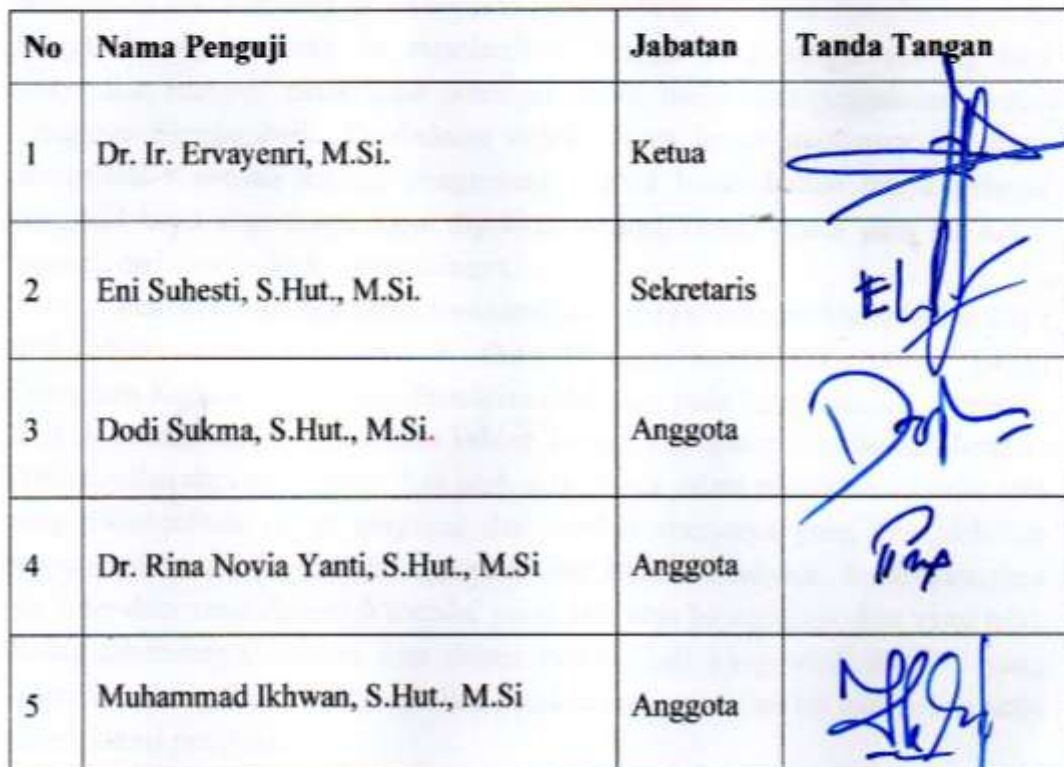 No Nama Penguji Jabatan Tanda Tangan
1 Dr. Ir. Ervayenri, M.Si. Ketua
2 Eni Suhesti, S.Hut., M.Si. Sekretaris
3 Dodi Sukma, S.Hut., M.Si. Anggota
4 Dr. Rina Novia Yanti, S.Hut., M.Si Anggota
5 Muhammad Ikhwan, S.Hut., M.Si Anggota